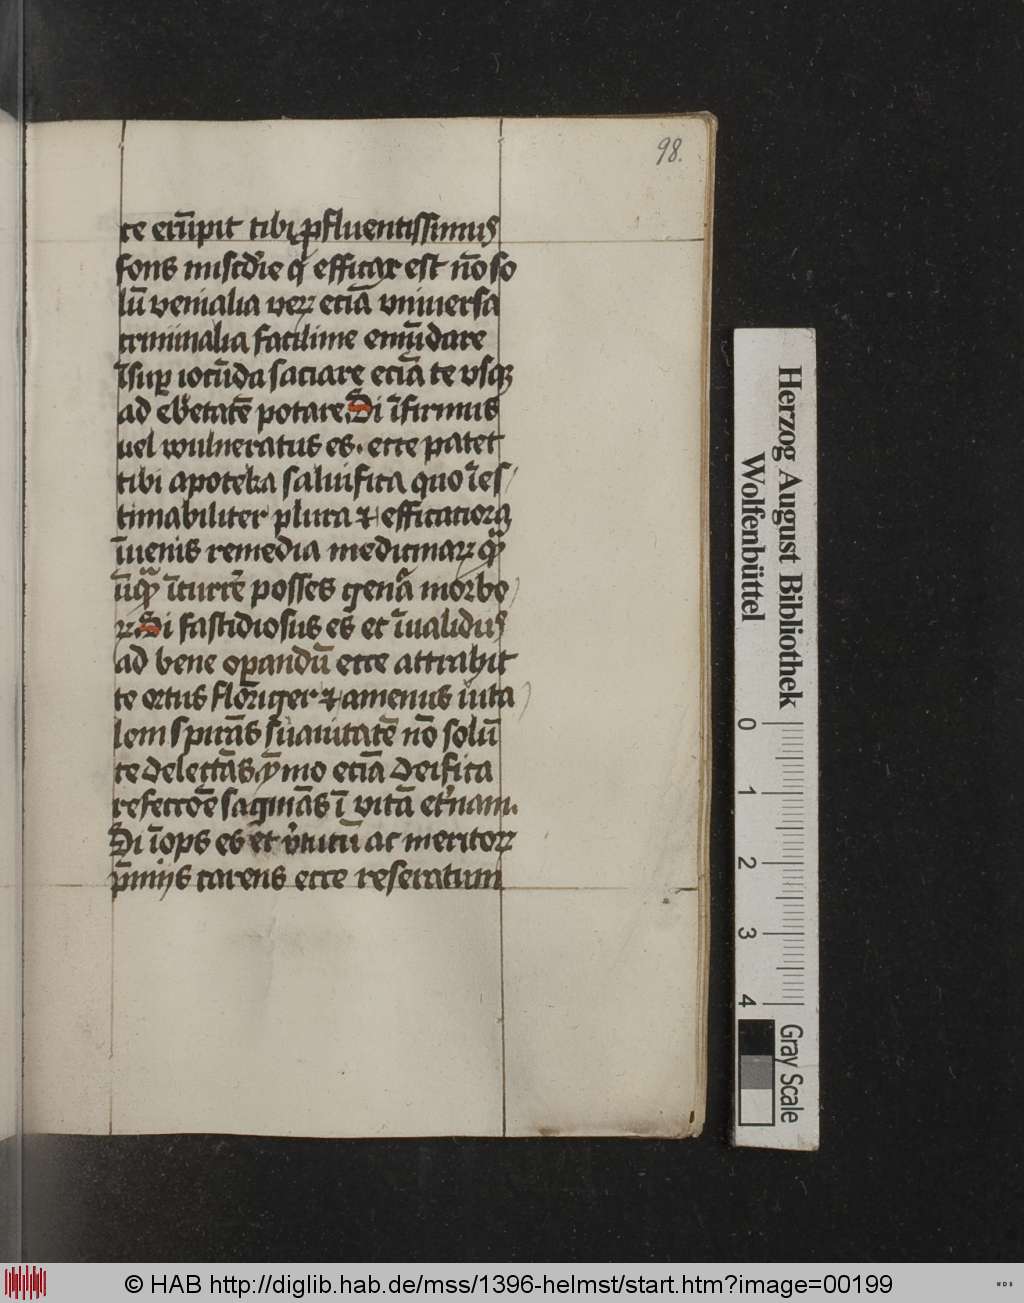 98.
te erūpit tibi ꝓfluentissimus
fons misc̄die q̄ efficax est nō so
lū venialia verꝝ eciā vniuersa
criminalia facilime emūdare
īsuꝑ iocūda saciare eciā te vsqꝫ
ad ebⁱetatē potare Si īfirmus
uel wulneratus es. ecce patet
tibi apoteka saluifica quo īes
timabiliter plura ⁊ efficaciora
īuenis remedia medicinaꝝ qᷓ
ūqᷓ īcurrē posses genᷓa morbo
ꝝ Si fastidiosus es et īualidus
ad bene oꝑandū ecce attrahit
te ortus florīger ⁊ amenus iuta
lem spirās suauitatē nō solū
te delectās ȳmo eciā deifica
refeccōe saginās ī vitā et̾nam.
Si īops es et v̾tutū ac meritoꝝ
p̄mijs carens ecce reseratum
Herzog August Bibliothek
Wolfenbüttel
0 1 2 3 4
Gray Scale
© HAB http://diglib.hab.de/mss/1396-helmst/start.htm?image=00199
WDB